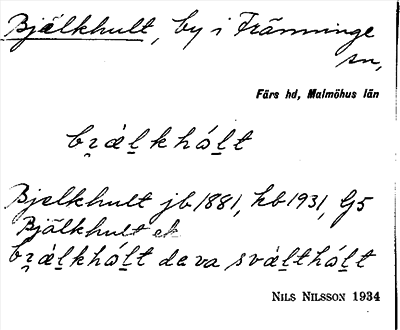 Bjälkhult, by i Främninge
sn,
Färs hd, Malmöhus län
bi̯ál̠khól̠t
Bjelkhult jb 1881, kb 1931, G5
Bjälkhult ek
bi̯ál̠khól̠t de va svál̠thól̠t
NILS NILSSON 1934